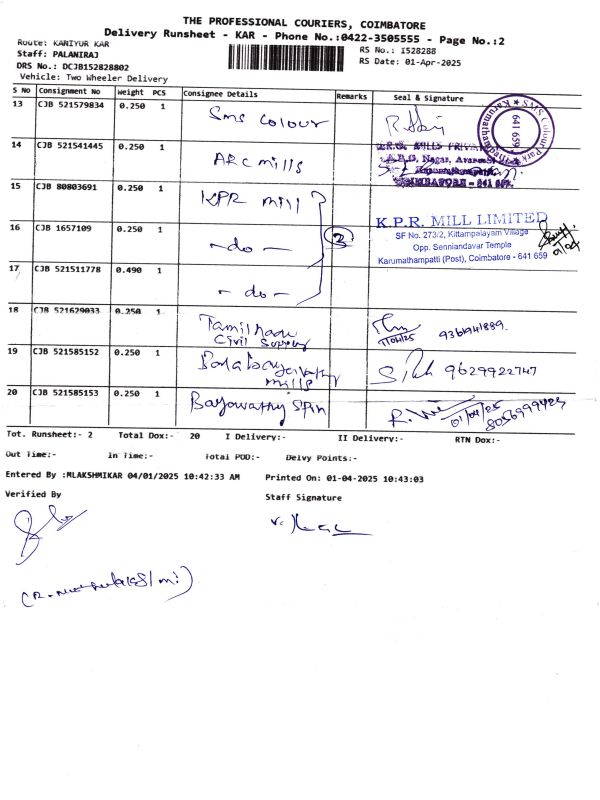 THE PROFESSIONAL COURIERS, COIMBATORE
Delivery Runsheet - KAR - Phone No.:0422-3505555 - Page No.:2
Route: KANIYUR KAR
RS No.: I528288
Staff: PALANIRAJ
RS Date: 01-Apr-2025
DRS No.: DCJB152828802
Vehicle: Two Wheeler Delivery
S No Consignment No Weight PCS Consignee Details Remarks Seal & Signature
13 CJB 521579834 0.250 1 Sms colour
SMS Colour Park
641 659
14 CJB 521541445 0.250 1 ARC mills
15 CJB 80803691 0.250 1 KPR mill
K.P.R. MILL LIMITED
16 CJB 1657109 0.250 1 - do - 3
SF No. 273/2, Kittampalayam Village
Opp. Senniandavar Temple
Karumathampatti (Post), Coimbatore - 641 659
17 CJB 521511778 0.490 1 - do -
18 CJB 521629033 0.250 1 Tamilnadu
Civil
1/04/25 9361941889.
19 CJB 521585152 0.250 1
mills
9629922747
20 CJB 521585153 0.250 1 Spin
01/04/25
Tot. Runsheet:- 2 Total Dox:- 20 I Delivery:- II Delivery:- RTN Dox:-
Out Time:- In Time:- Total POD:- Delvy Points:-
Entered By :MLAKSHMIKAR 04/01/2025 10:42:33 AM Printed On: 01-04-2025 10:43:03
Verified By
Staff Signature